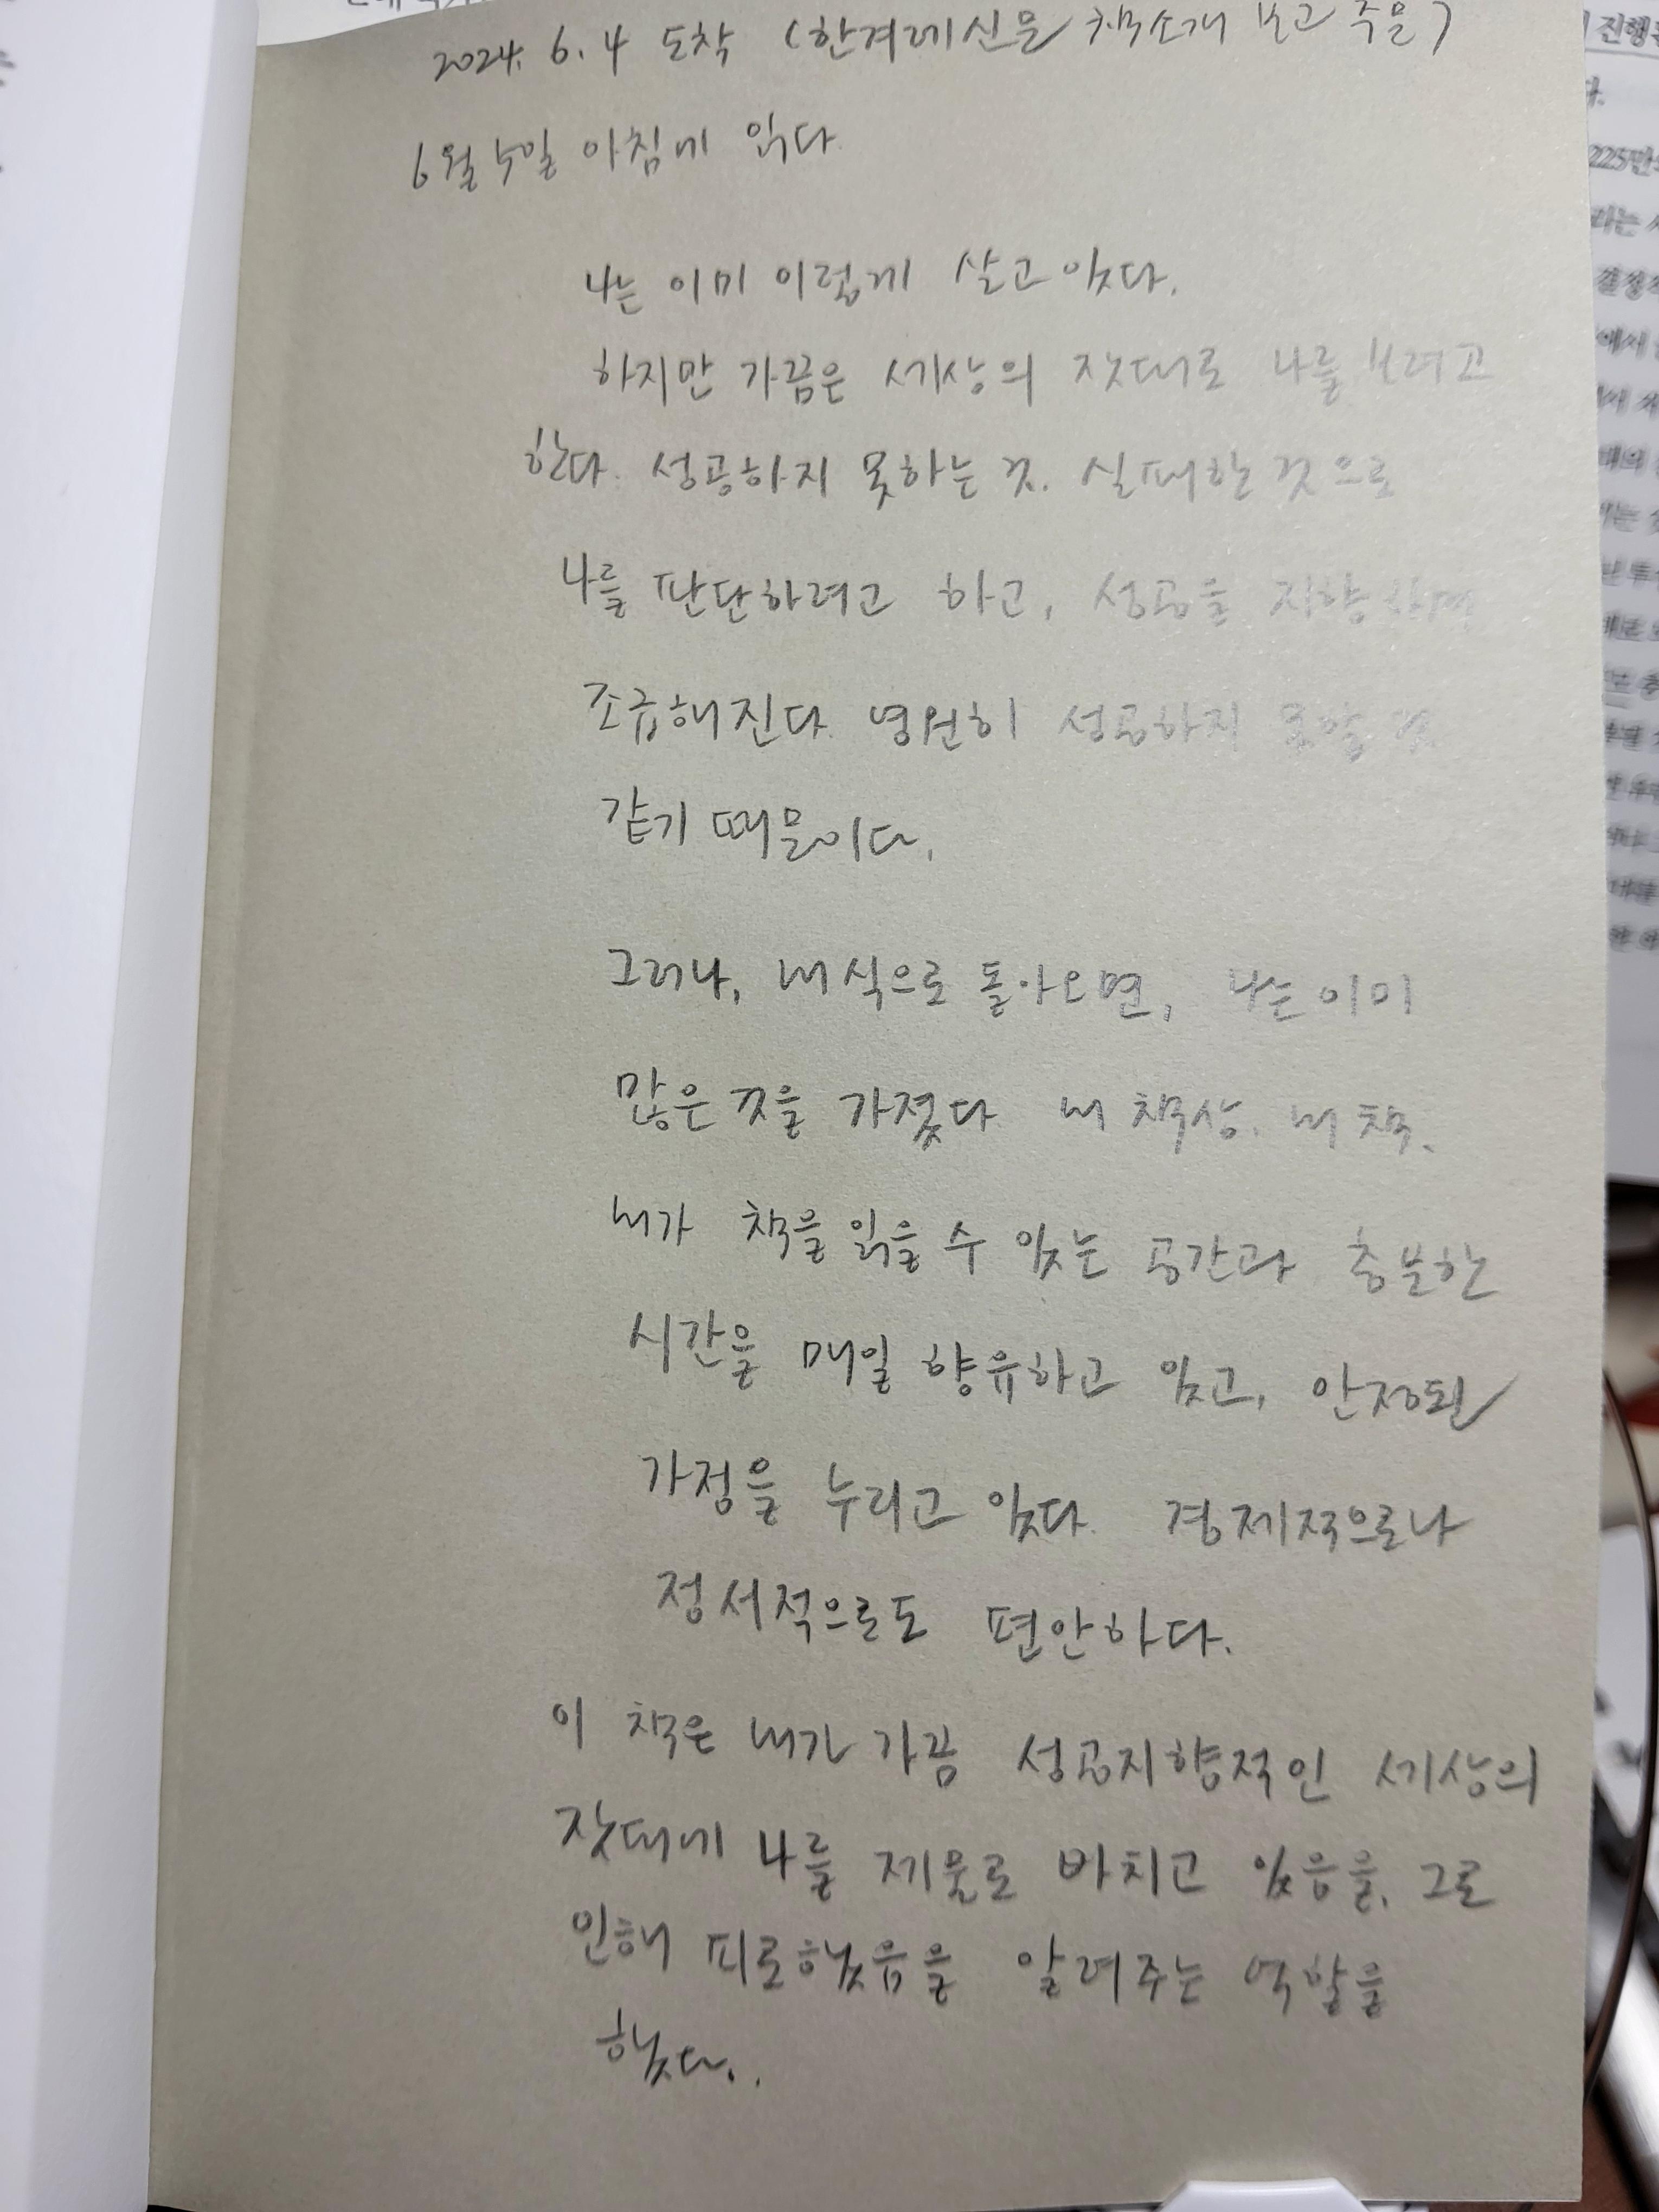 2024. 6. 4 도착 (한겨레신문 책소개 보고 주문)
6월 5일 아침에 읽다.
나는 이미 이렇게 살고 있다.
하지만 가끔은 세상의 잣대로 나를 보려고
한다. 성공하지 못하는 것. 실패한 것으로
나를 판단하려고 하고, 성공을 지향하며
조급해진다. 영원히 성공하지 못할 것
같기 때문이다.
그러나, 내 식으로 돌아오면, 나는 이미
많은 것을 가졌다. 내 책상. 내 책.
내가 책을 읽을 수 있는 공간과 충분한
시간을 매일 향유하고 있고, 안정된
가정을 누리고 있다. 경제적으로나
정서적으로도 편안하다.
이 책은 내가 가끔 성공지향적인 세상의
잣대에 나를 제물로 바치고 있음을, 그로
인해 피로했음을 알려주는 역할을
했다..
진행
225만
라는
결정
에서